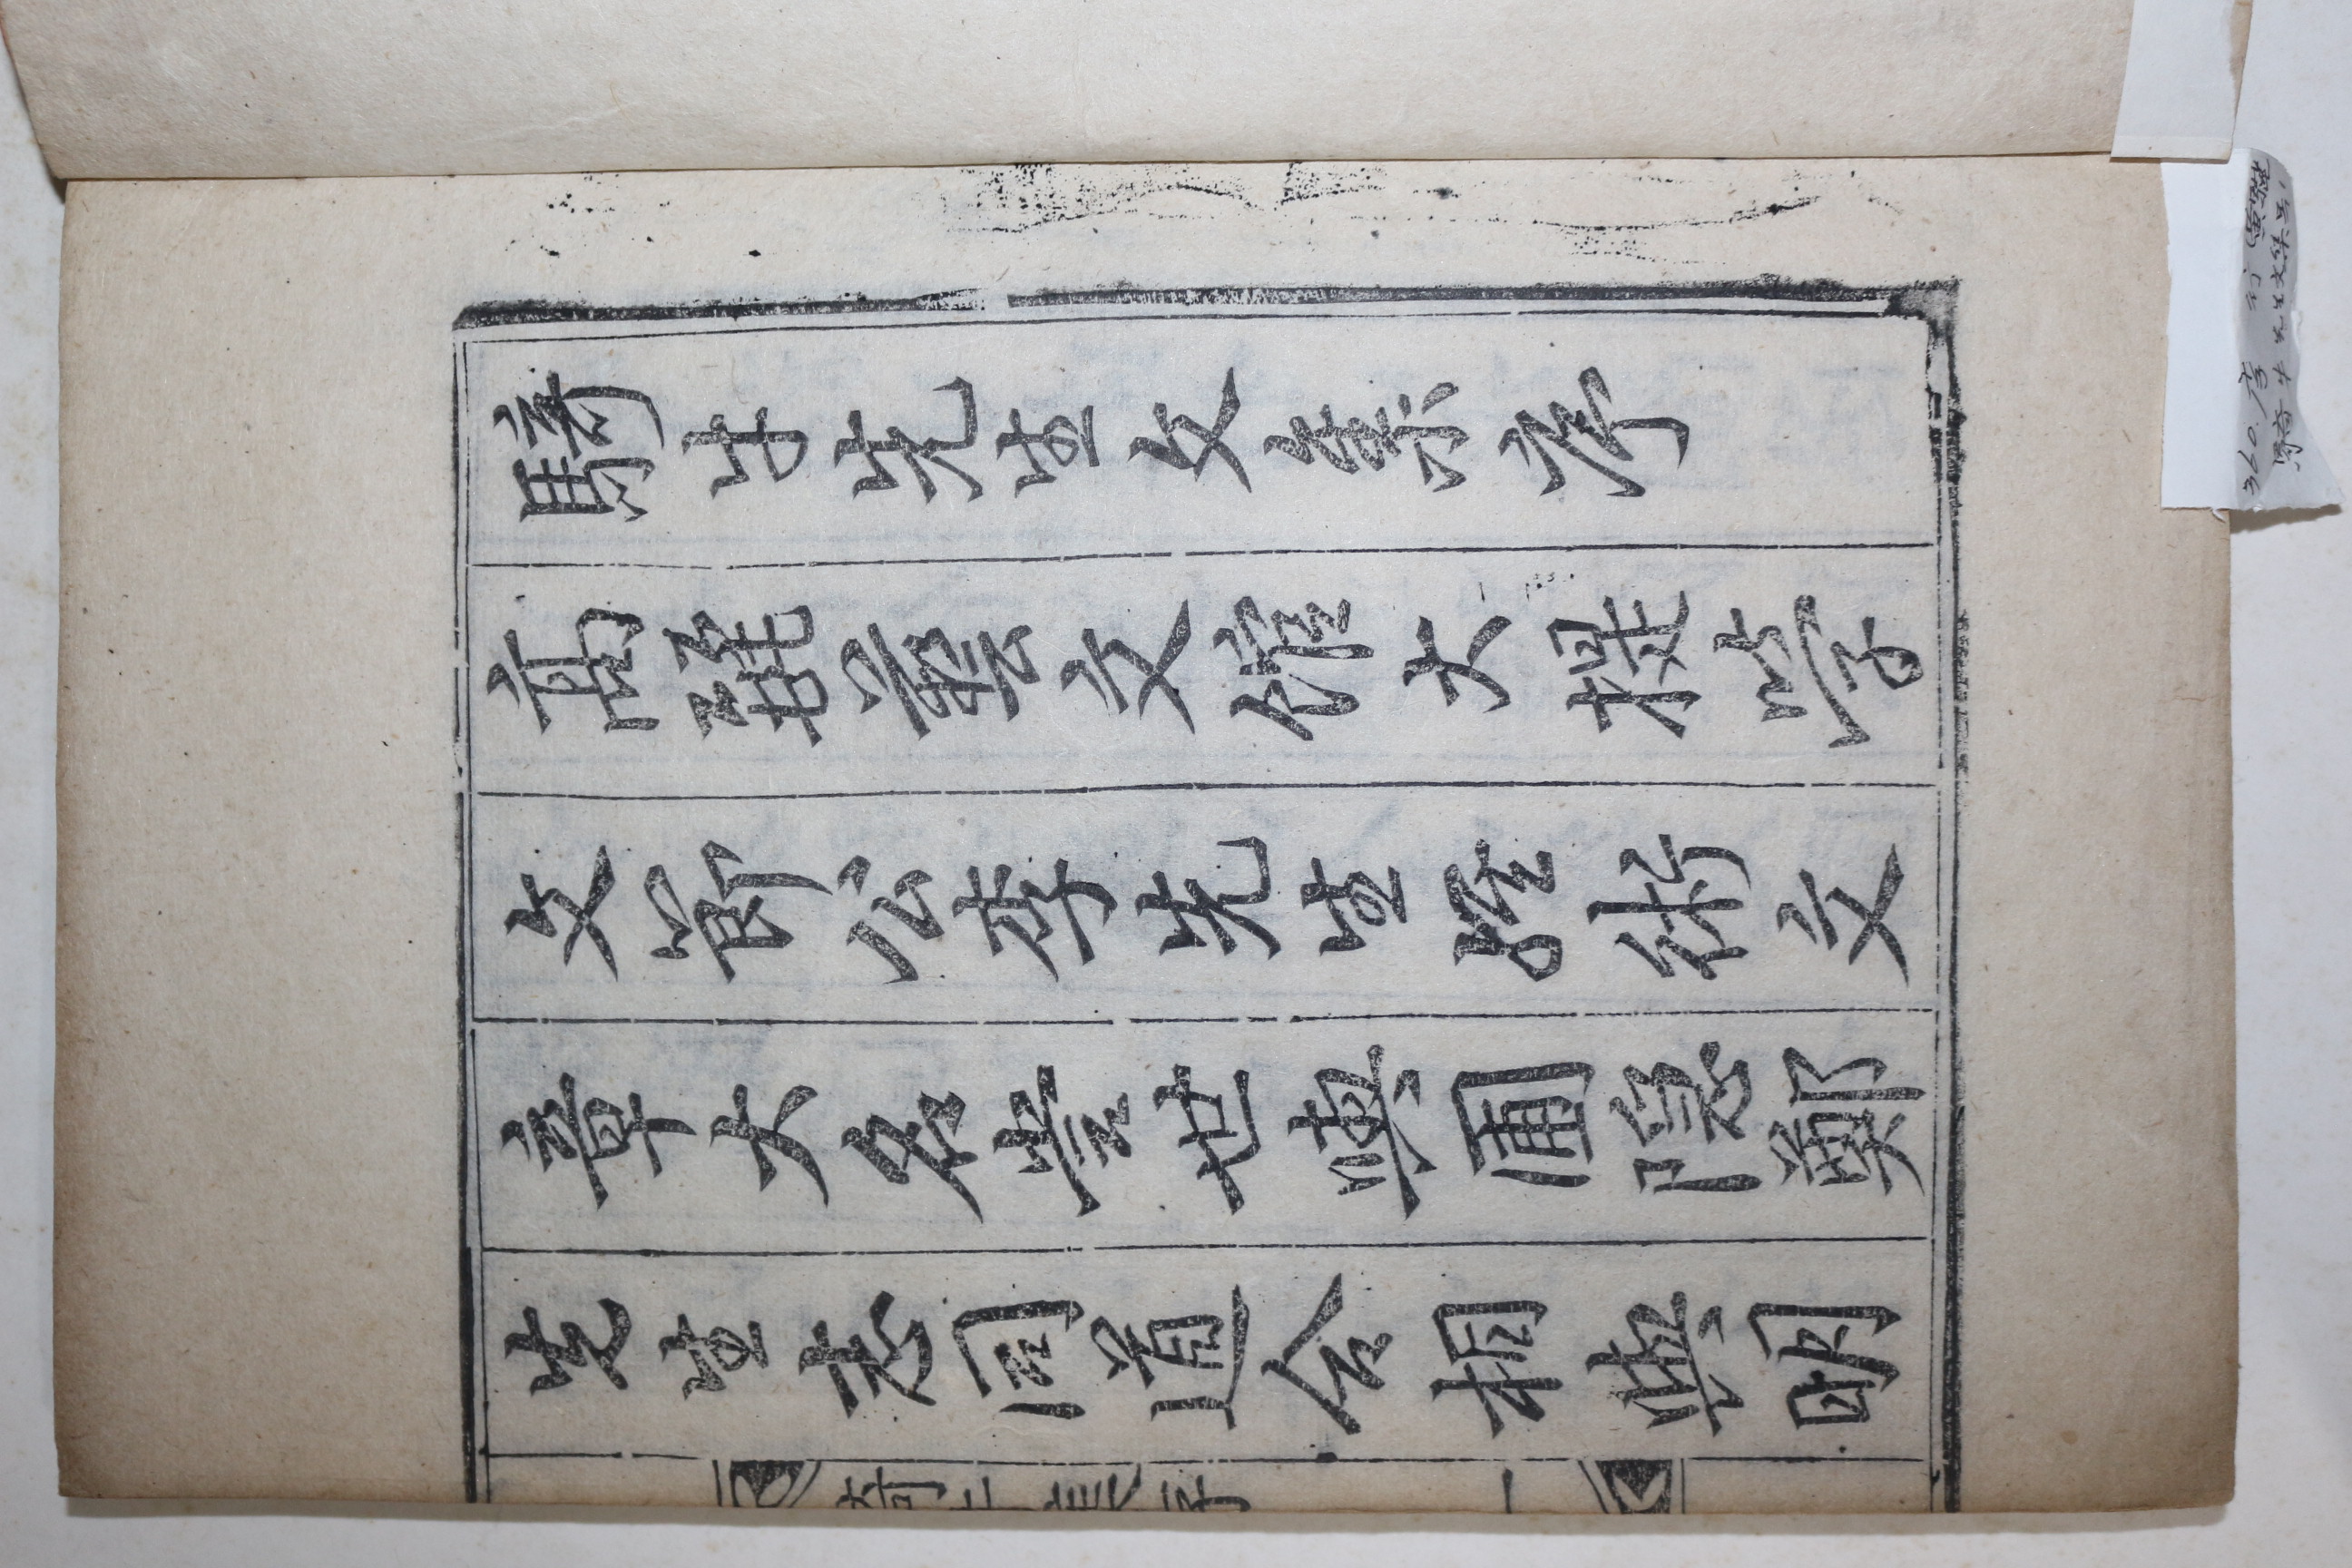 騎牛先生文集序
高麗藝文館大提學
文節公李先生經術文
章大名當世與圃隱鄭
先生志同道合相與明
一
360. 李 行
騎牛先生文集